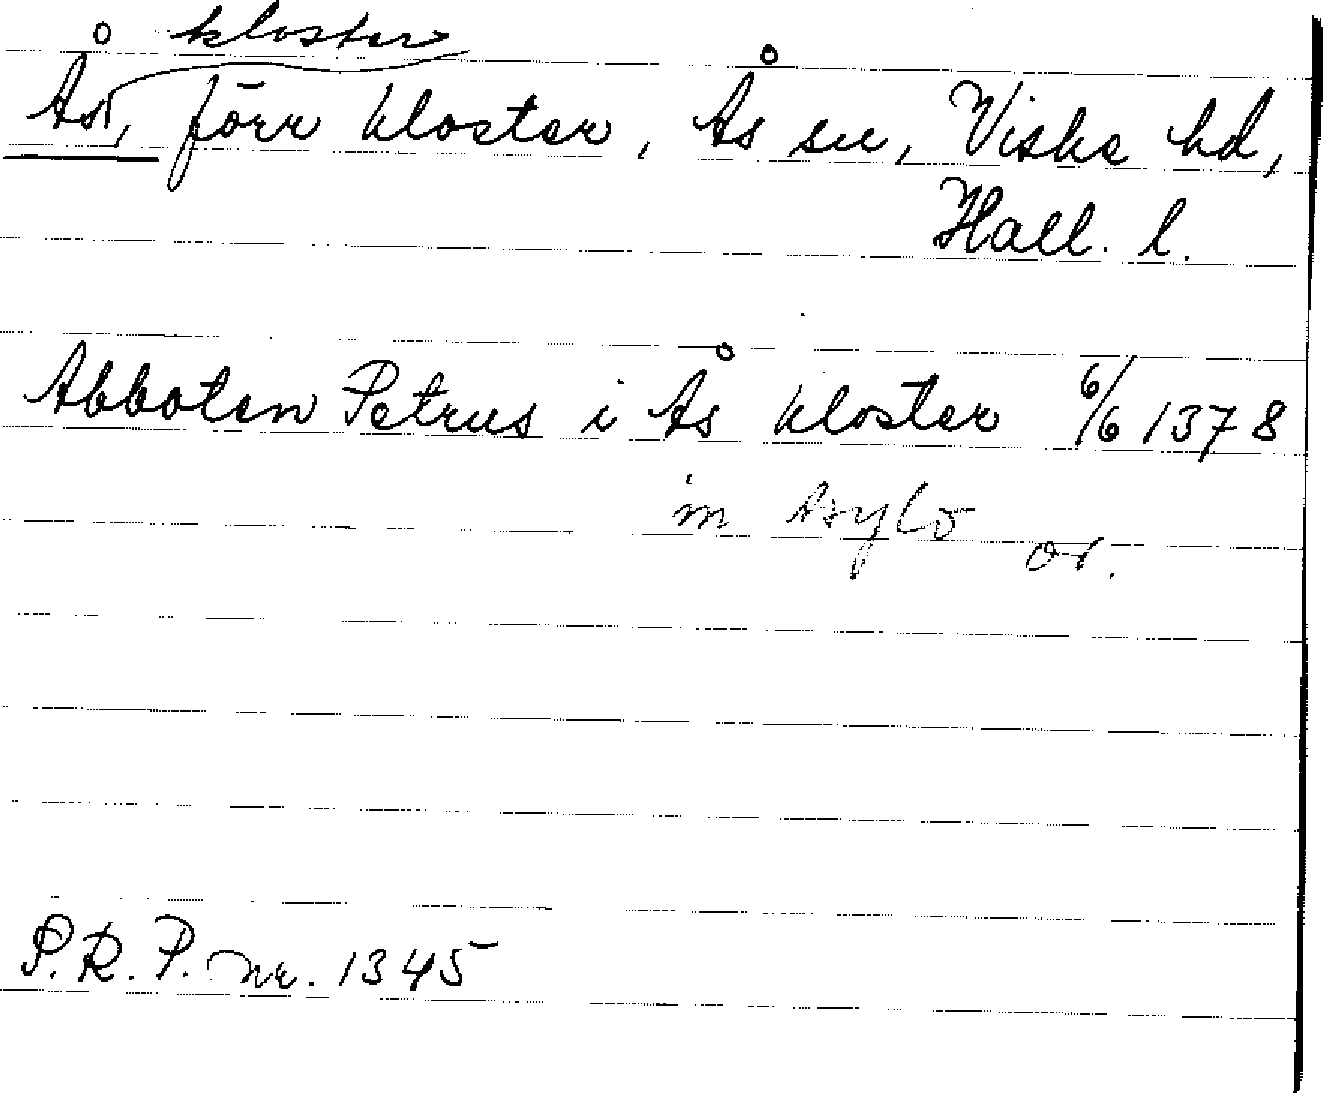 kloster
Ås, förr kloster, Ås sn, Viske hd,
Hall. l.
Abboten Petrus i Ås kloster 6/6 1378
in Asylo or.
S.R.P. nr. 1345